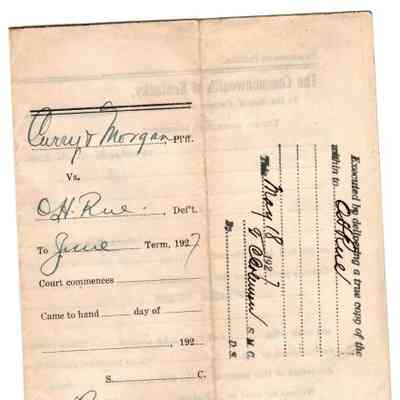 Curry & Morgan, Pl'ff.
Vs.
O.H. Rue., Def't.
To June Term, 1927
Court commences
Came to hand day of
, 192
S. C.
Executed by delivering a true copy of the
within to O H Rue
This May 18 1927
S. M. C.
By D. S.
The Commonwealth of Kentucky,